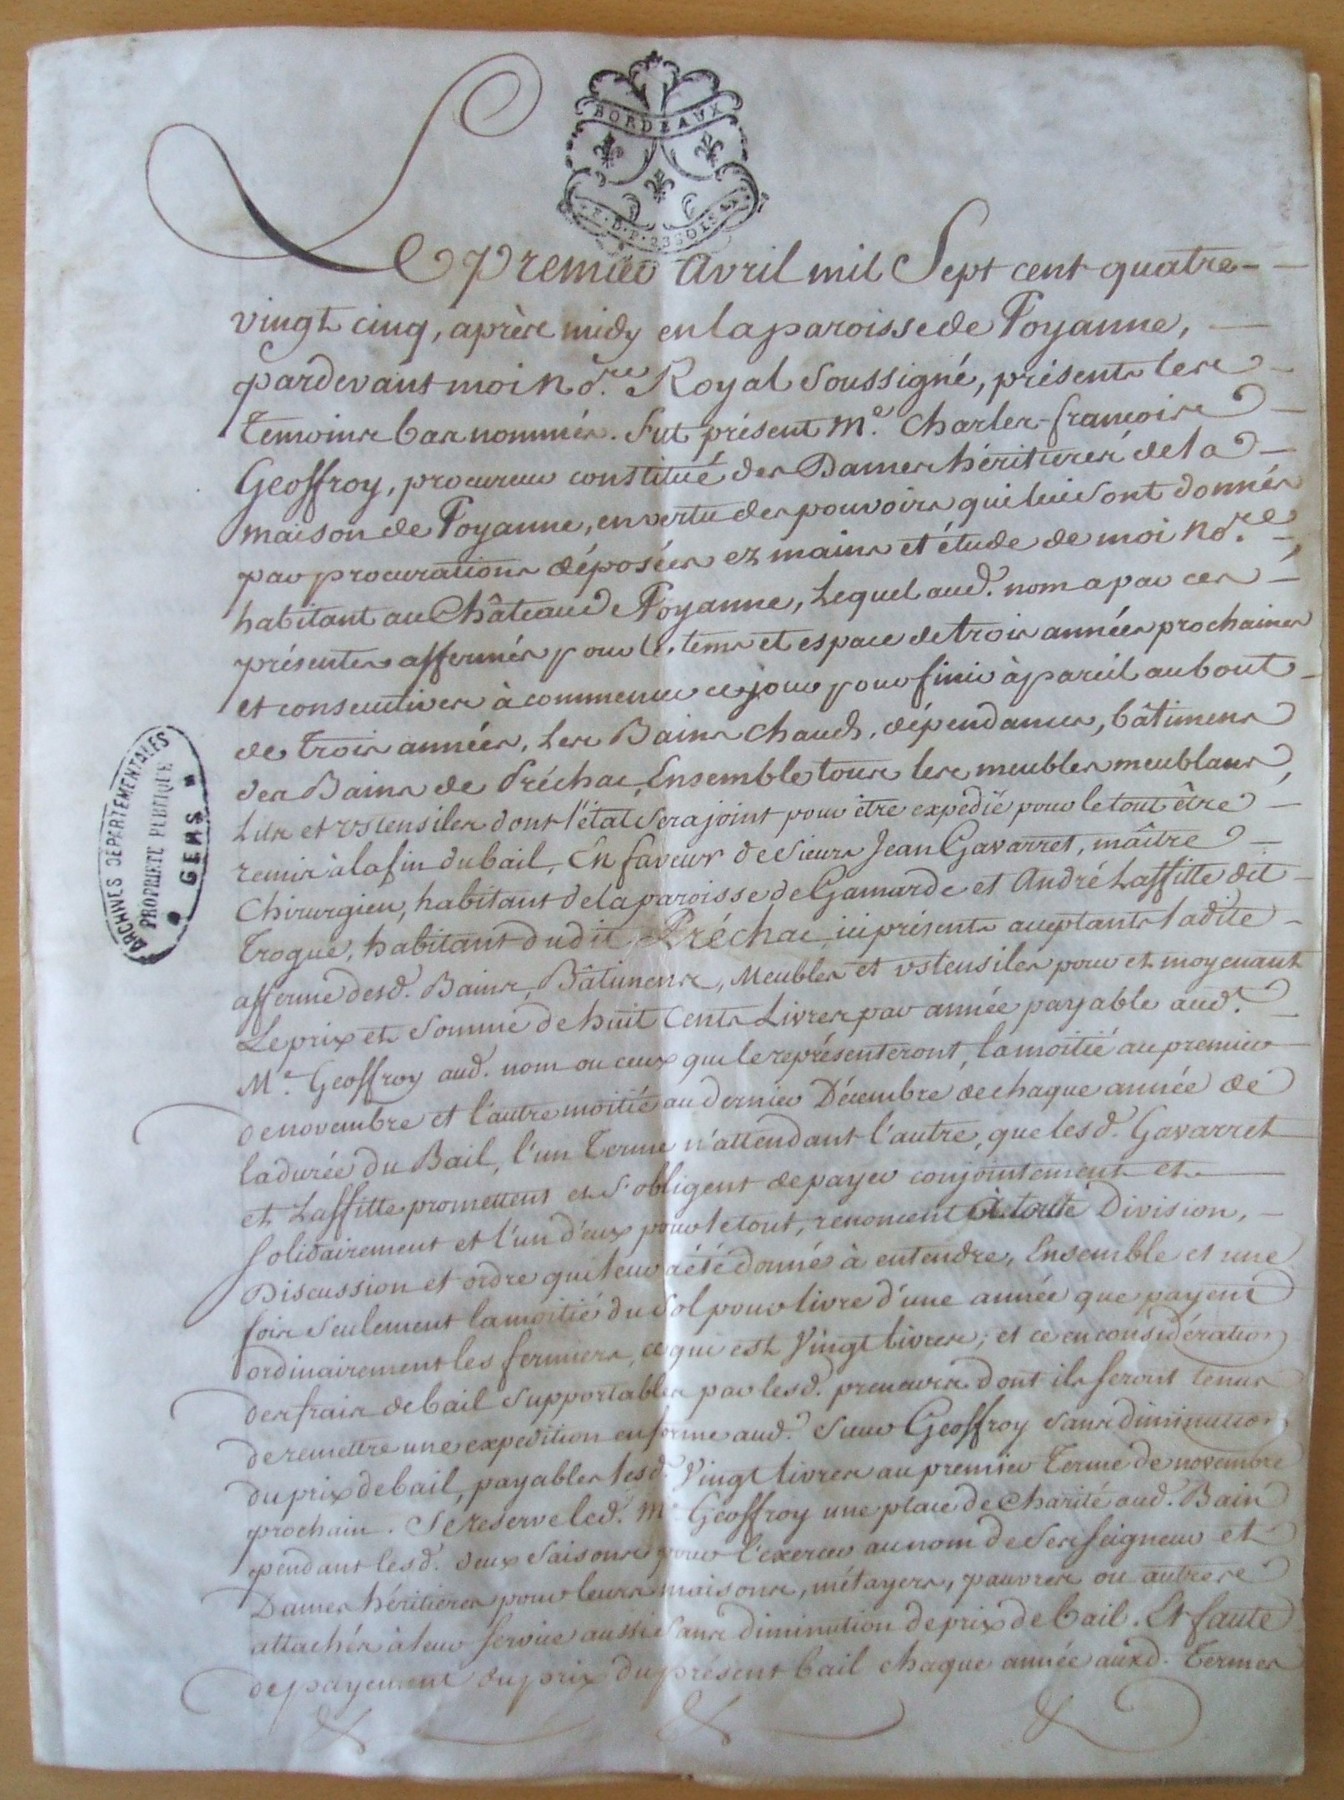 BORDEAUX
Le premier Avril mil Sept cent quatre-
vingt cinq, après midy en la paroisse de Poyanne,
pardevant moi No.re Royal Soussigné, présents les
temoins bas nommés. Fut présent M.e Charles-françois
Geoffroy, procureur constitué des Dames héritieres de la
maison de Poyanne, en vertu des pouvoirs qui lui sont donnés
par procurations déposées ez mains et étude de moi No.re,
habitant au Château de Poyanne, Lequel aud. nom a par ces
présentes affermés pour le tems et espace de trois années prochaines
et consecutives à commencer ce jour pour finir à pareil au bout
de trois années, Les Bains chauds, dépendances, bâtimens
des Bains de Préchac, Ensemble tous les meubles meublans,
Lits et ustensiles dont l'état sera joint pour être expedié pour le tout être
remis à la fin du bail, En faveur de Sieurs Jean Gavarret, maître
Chirurgien, habitant de la paroisse de Gamarde et André Laffitte dit
Trogué, habitant dudit Préchac ici présents acceptants ladite
afferme desd. Bains, Bâtimens, Meubles et ustensiles pour et moyenant
Le prix et Somme de huit Cents Livres par année payable aud.
M.e Geoffroy aud. nom ou ceux qui le représenteront, la moitié au premier
de novembre et l'autre moitié au dernier Décembre de chaque année de
la durée du Bail, l'un terme n'attendant l'autre, que lesd. Gavarret
et Laffitte promettent et S'obligent de payer conjointement et
solidairement et l'un d'eux pour le tout, renoncent à toute Division,
Discussion et ordre qui leur a été donné à entendre, Ensemble et une
fois Seulement la moitié du Sol pour livre d'une année que payent
ordinairement les fermiers, ce qui est Vingt livres; et ce en considération
des frais de bail supportables par lesd. preneurs dont ils seront tenus
de remettre une expedition en forme aud. Sieur Geoffroy sans diminution
du prix de bail, payables lesd. Vingt livres au premier terme de novembre
prochain. Se reserve led. M.e Geoffroy une place de Charité aud. Bain
pendant lesd. deux Saisons pour l'exercer au nom de Ses Seigneur et
Dames héritieres pour leurs maisons, métayers, pauvres ou autres
attachés à leur Service aussi Sans diminution de prix de bail. Et faute
de payement du prix du présent bail chaque année auxd. termes
ARCHIVES DEPARTEMENTALES
PROPRIETE PUBLIQUE
GERS